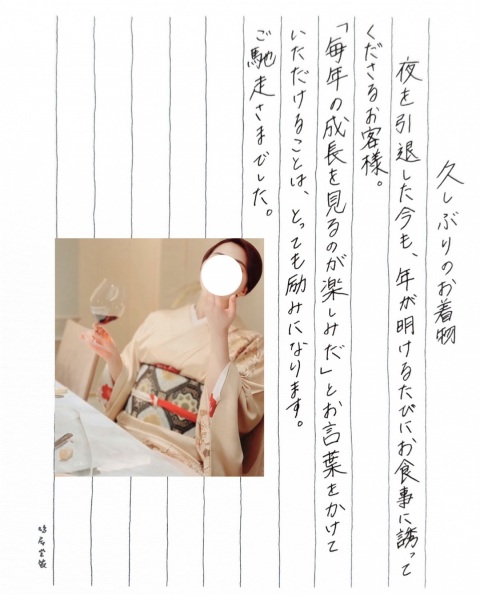 久しぶりのお着物
夜を引退した今も、年が明けるたびにお食事に誘って
くださるお客様。
「毎年の成長を見るのが楽しみだ」とお言葉をかけて
いただけることは、とっても励みになります。
ご馳走さまでした。